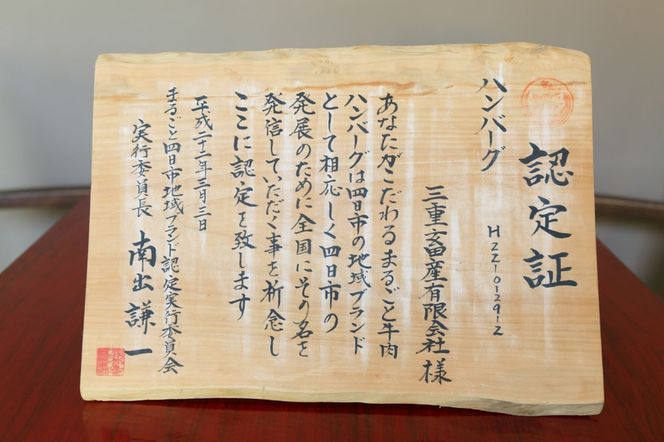 認定証
ハンバーグ
H221012912
三重玄畜産有限会社様
あなたがこだわるまるごと牛肉
ハンバーグは四日市の地域ブランド
として相応しく四日市の
発展のために全国にその名を
発信していただく事を祈念し
ここに認定を致します
平成二十二年三月三日
まるごと四日市地域ブランド認定実行委員会
実行委員長 南出謙一